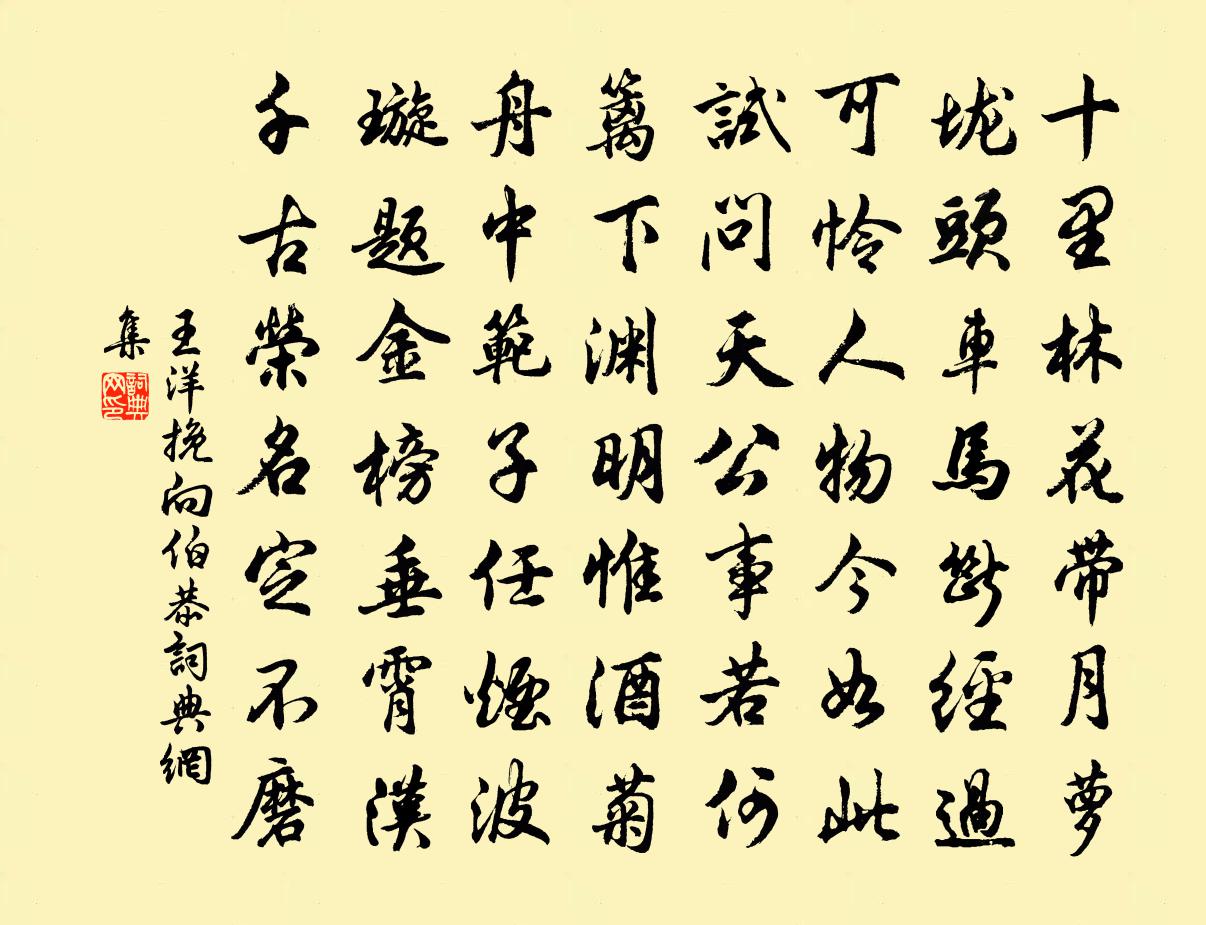 十里林花带月萝
垅頭車馬斷經過
可怜人物今如此
試問天公事若何
篱下渊明惟酒菊
舟中範子任煙波
璇题金榜垂霄漢
千古榮名定不磨
王洋挽向伯恭詞典網
集
詞典
网印